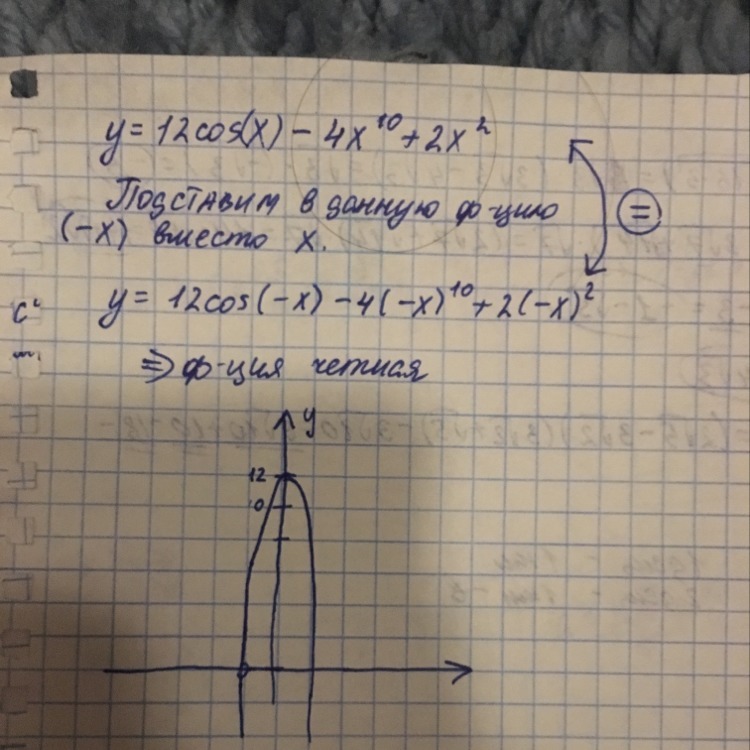 y = 12cos(x) - 4x^10 + 2x^2
Подставим в данную ф-цию
(-x) вместо x.
=
y = 12cos(-x) - 4(-x)^10 + 2(-x)^2
=> ф-ция четная
y
12
10